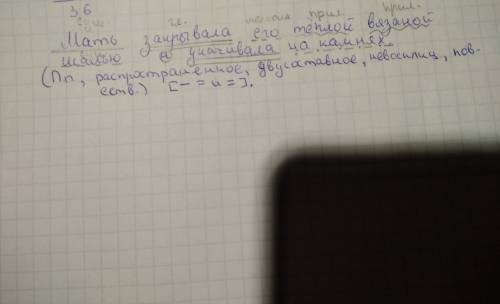 36
сущ. гл. местоим. прил. прил.
Мать закрывала его теплой вязаной
шалью и укачивала на камнях
(Пп, распространенное, двусоставное, невосклиц, пов-
еств.) [– = и =].